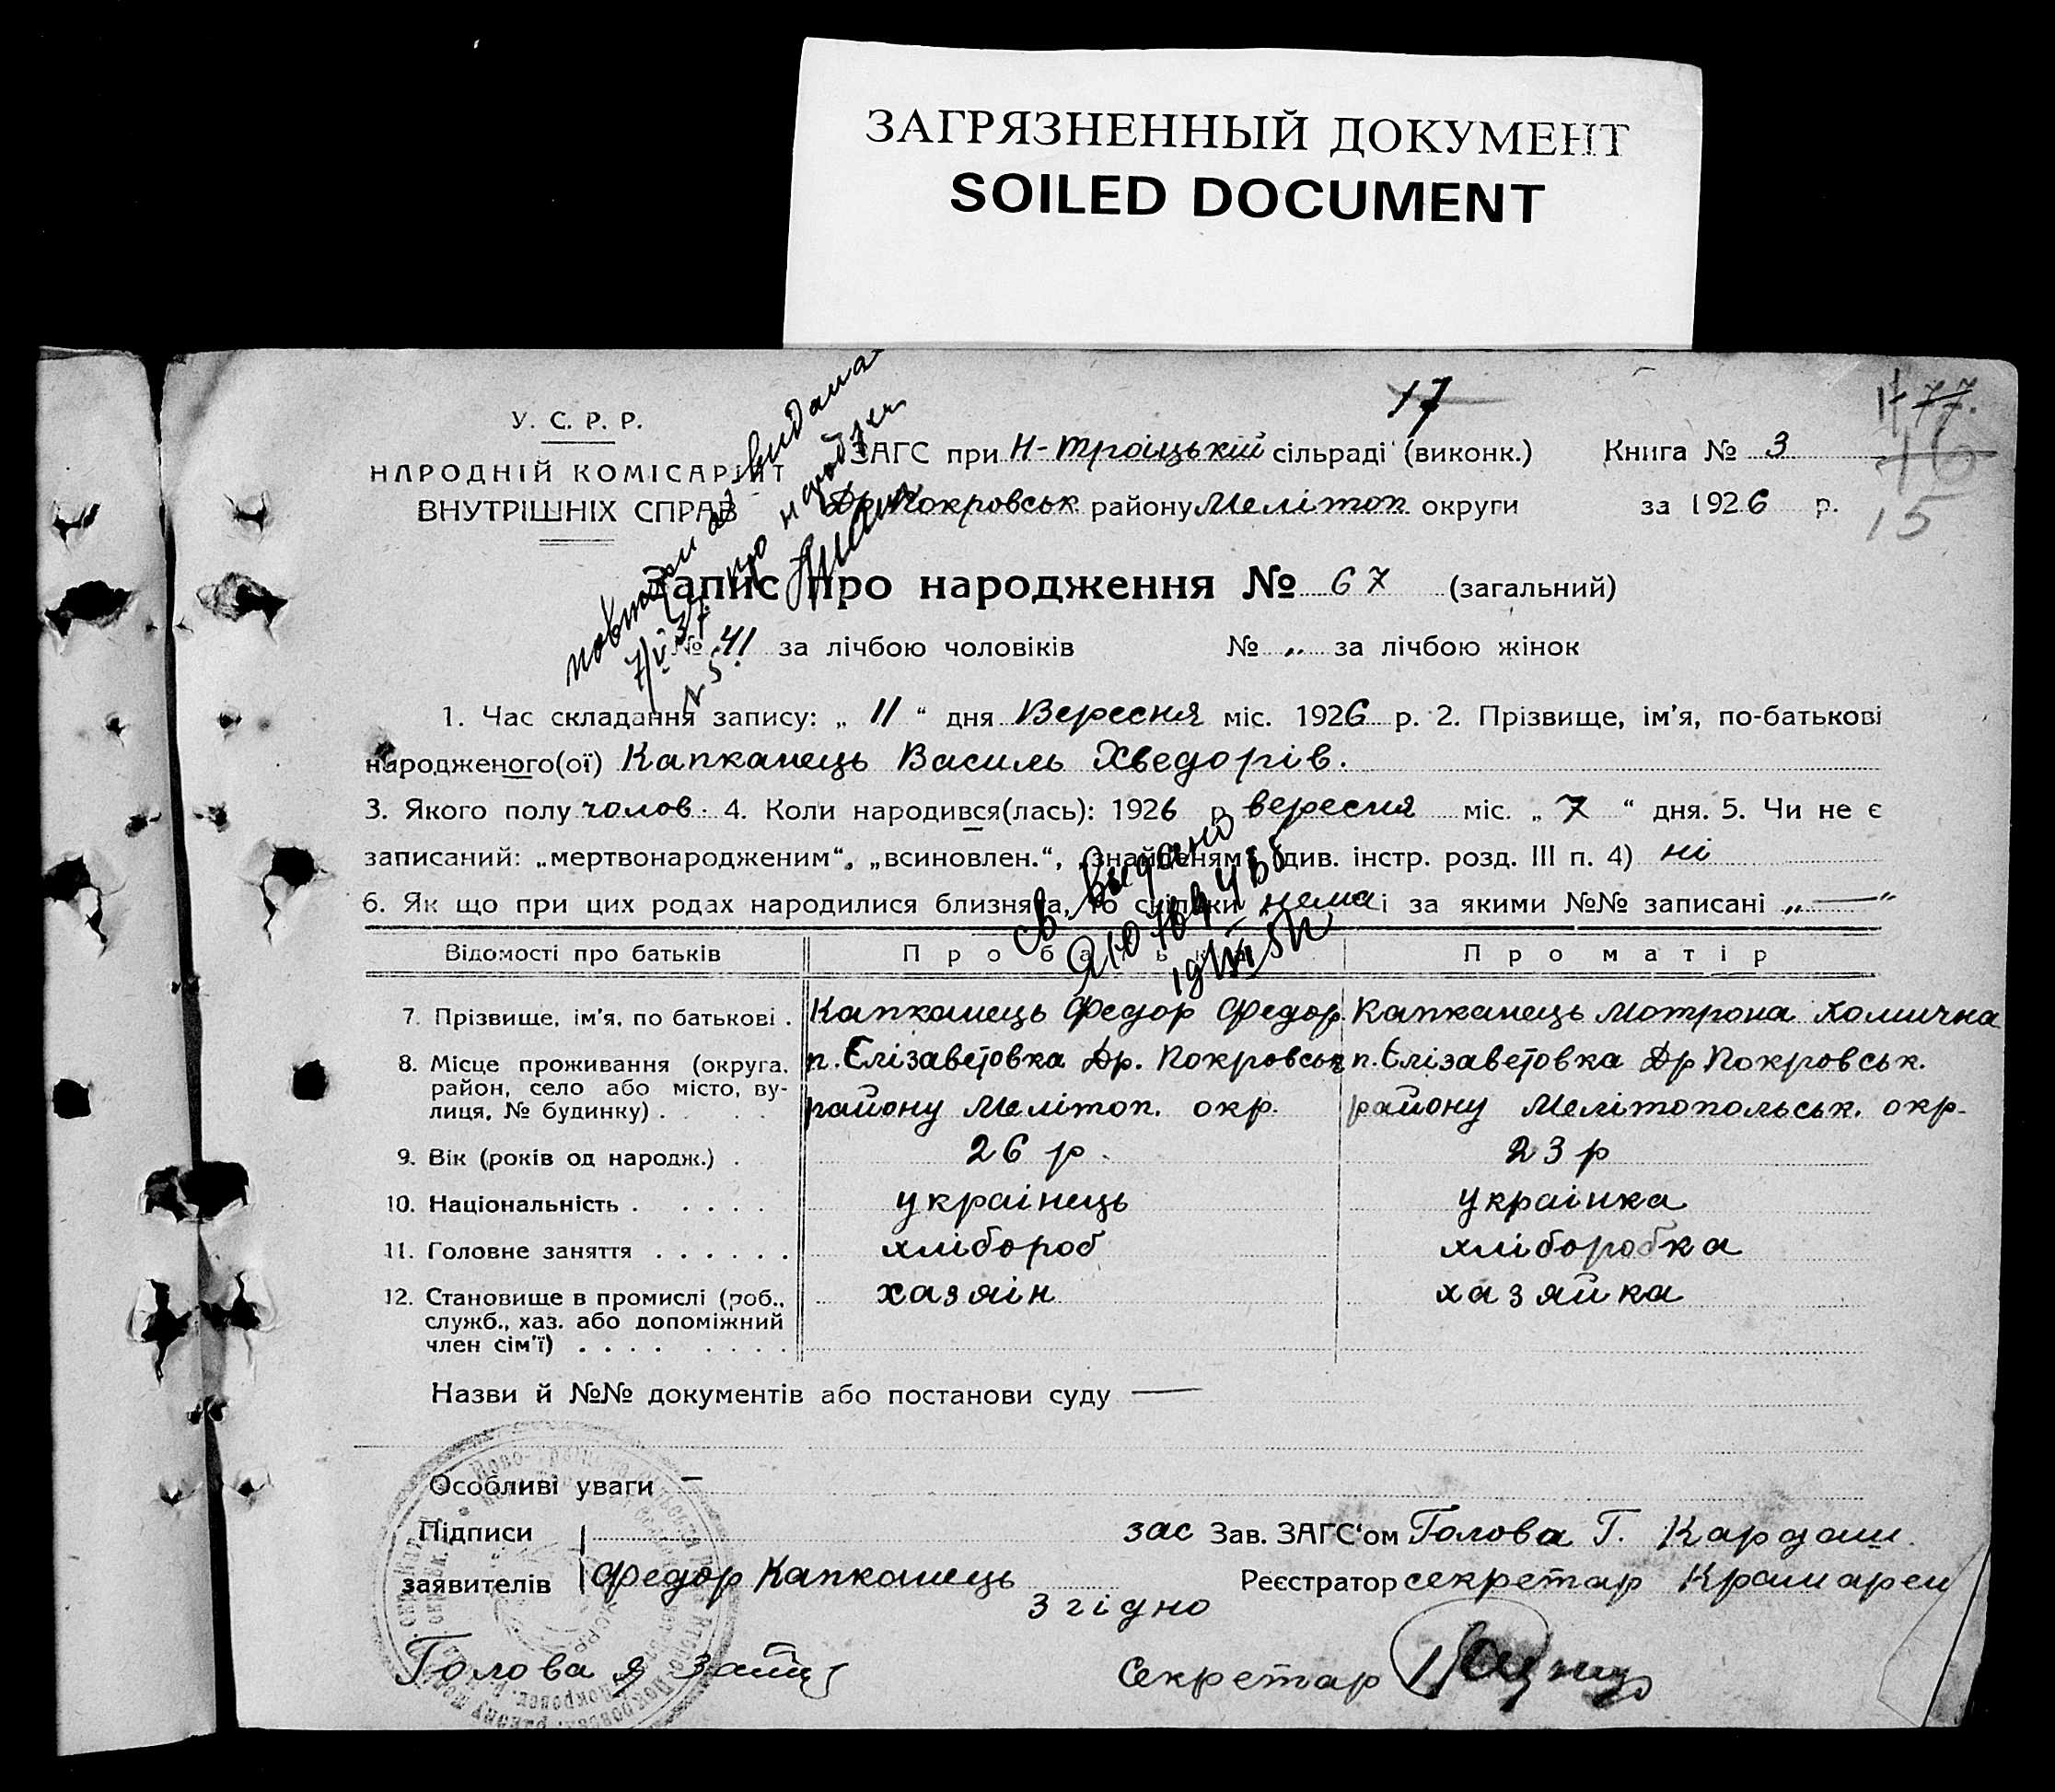 ЗАГРЯЗНЕННЫЙ ДОКУМЕНТ
SOILED DOCUMENT
17
77.
16
15
У. С. Р. Р.
НАРОДНІЙ КОМІСАРІЯТ
ВНУТРІШНІХ СПРАВ
ЗАГС при Н-Троїцькій сільраді (виконк.) Книга № 3
Др Покровськ району Мелітоп. округи за 1926 р.
повторн видана
про народжен
7/V 37
№ 5.
Запис про народження № 67 (загальний)
№ 41 за лічбою чоловіків № „ за лічбою жінок
1. Час складання запису: „ 11 “ дня Вересня міс. 1926 р. 2. Прізвище, ім’я, по-батькові
народженого(ої) Капканець Василь Хведорів.
3. Якого полу чолов. 4. Коли народився(лась): 1926 р. вересня міс. „ 7 “ дня. 5. Чи не є
записаний: „мертвонародженим“, „всиновлен.“, „знайденям“ (див. інстр. розд. III п. 4) ні
6. Як що при цих родах народилися близнята, то скільки нема і за якими №№ записані „ — “
св выдано
Відомості про батьків Про батька Про матір
7. Прізвище, ім’я, по батькові . Капканець Федор Федор. Капканець Мотрона Хомична
8. Місце проживання (округа, п. Єлізаветовка Др. Покровськ п. Єлізаветовка Др Покровськ.
район, село або місто, ву-
лиця, № будинку) . району Мелітоп. окр. району Мелітопольськ. окр.
9. Вік (років од народж.) . 26 р. 23 р
10. Національність . украінець украінка
11. Головне заняття . хлібороб хліборобка
12. Становище в промислі (роб., хазяін хазяйка
служб., хаз. або допоміжний
член сім’ї) .
Назви й №№ документів або постанови суду —
Особливі уваги –
Підписи
заявителів Федор Капканець
зас Зав. ЗАГС‘ом Голова Г. Кардаш.
Реєстратор секретар Крамарен
Згідно
Голова
Секретар